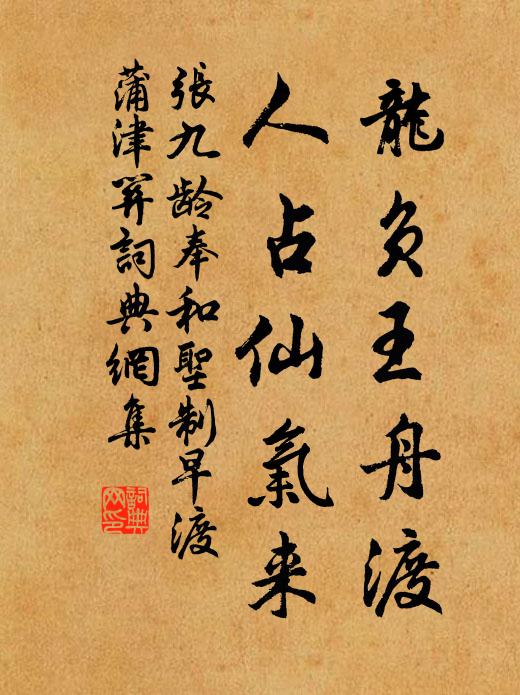 龍負王舟渡
人占仙氣来
張九龄奉和聖制早渡
蒲津関詞典網集
詞典
网印